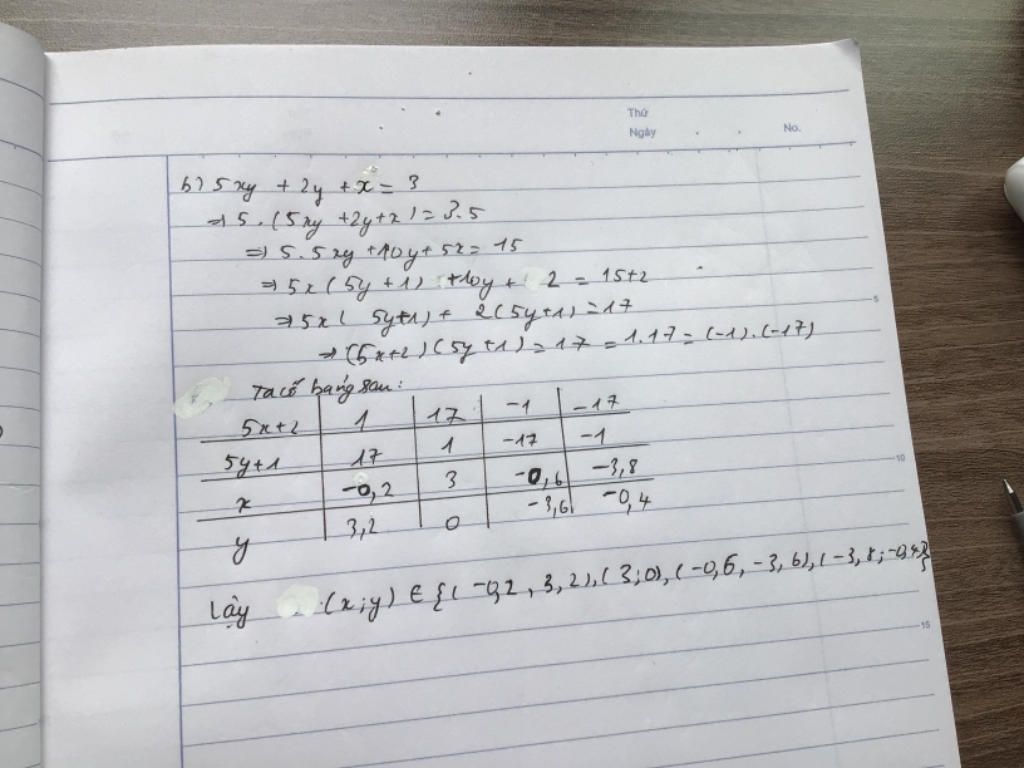 Thứ
Ngày . . No.
b) 5xy + 2y + x = 3
⇒ 5.(5xy + 2y + x) = 3.5
⇒ 5.5xy + 10y + 5x = 15
⇒ 5x(5y + 1) + 10y + 2 = 15+2
⇒ 5x(5y+1) + 2(5y+1) = 17
⇒ (5x+2)(5y+1) = 17 = 1.17 = (-1).(-17)
Ta có bảng sau:
5x+2 1 17 -1 -17
5y+1 17 1 -17 -1
x -0,2 3 -0,6 -3,8
y 3,2 0 -3,6 -0,4
Vậy (x;y) ∈ {(-0,2, 3,2),(3;0),(-0,6, -3,6),(-3,8;-0,4)}
5
10
15